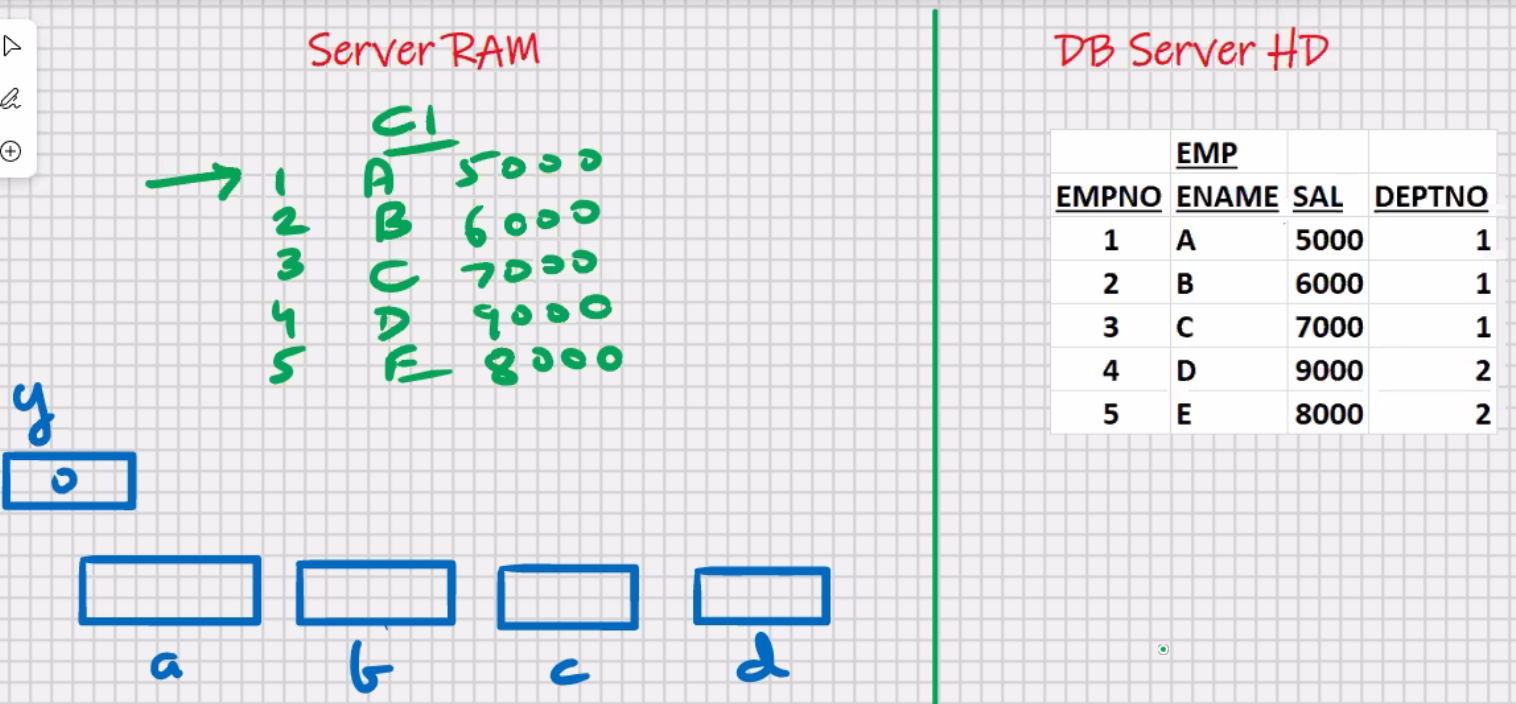 Server RAM
C1
1 A 5000
2 B 6000
3 C 7000
4 D 9000
5 E 8000
y
0
a b c d
DB Server HD
EMP
EMPNO ENAME SAL DEPTNO
1 A 5000 1
2 B 6000 1
3 C 7000 1
4 D 9000 2
5 E 8000 2